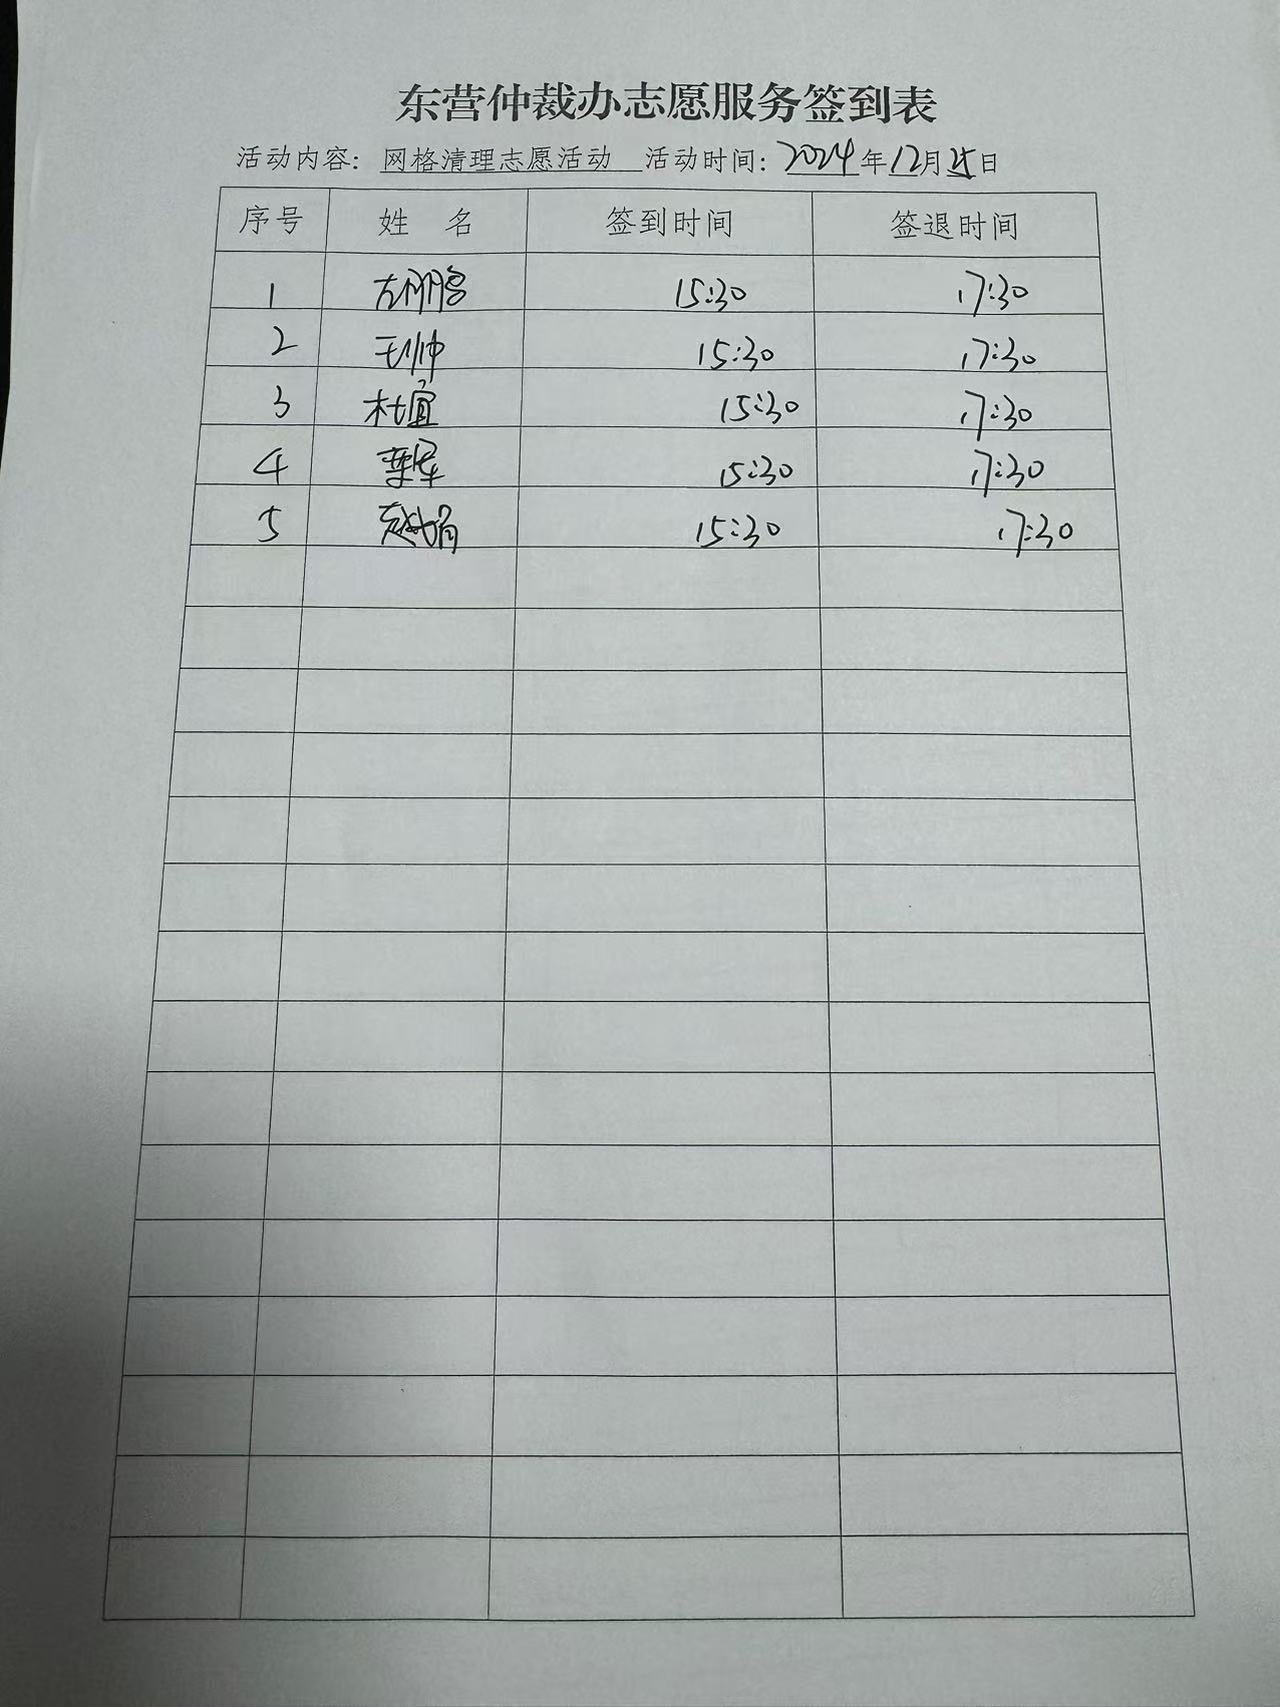 东营仲裁办志愿服务签到表
活动内容：网格清理志愿活动 活动时间：2024年12月25日
序号 姓 名 签到时间 签退时间
1 左鹏 15:30 17:30
2 王帅 15:30 17:30
3 杜宜 15:30 17:30
4 15:30 17:30
5 赵娟 15:30 17:30